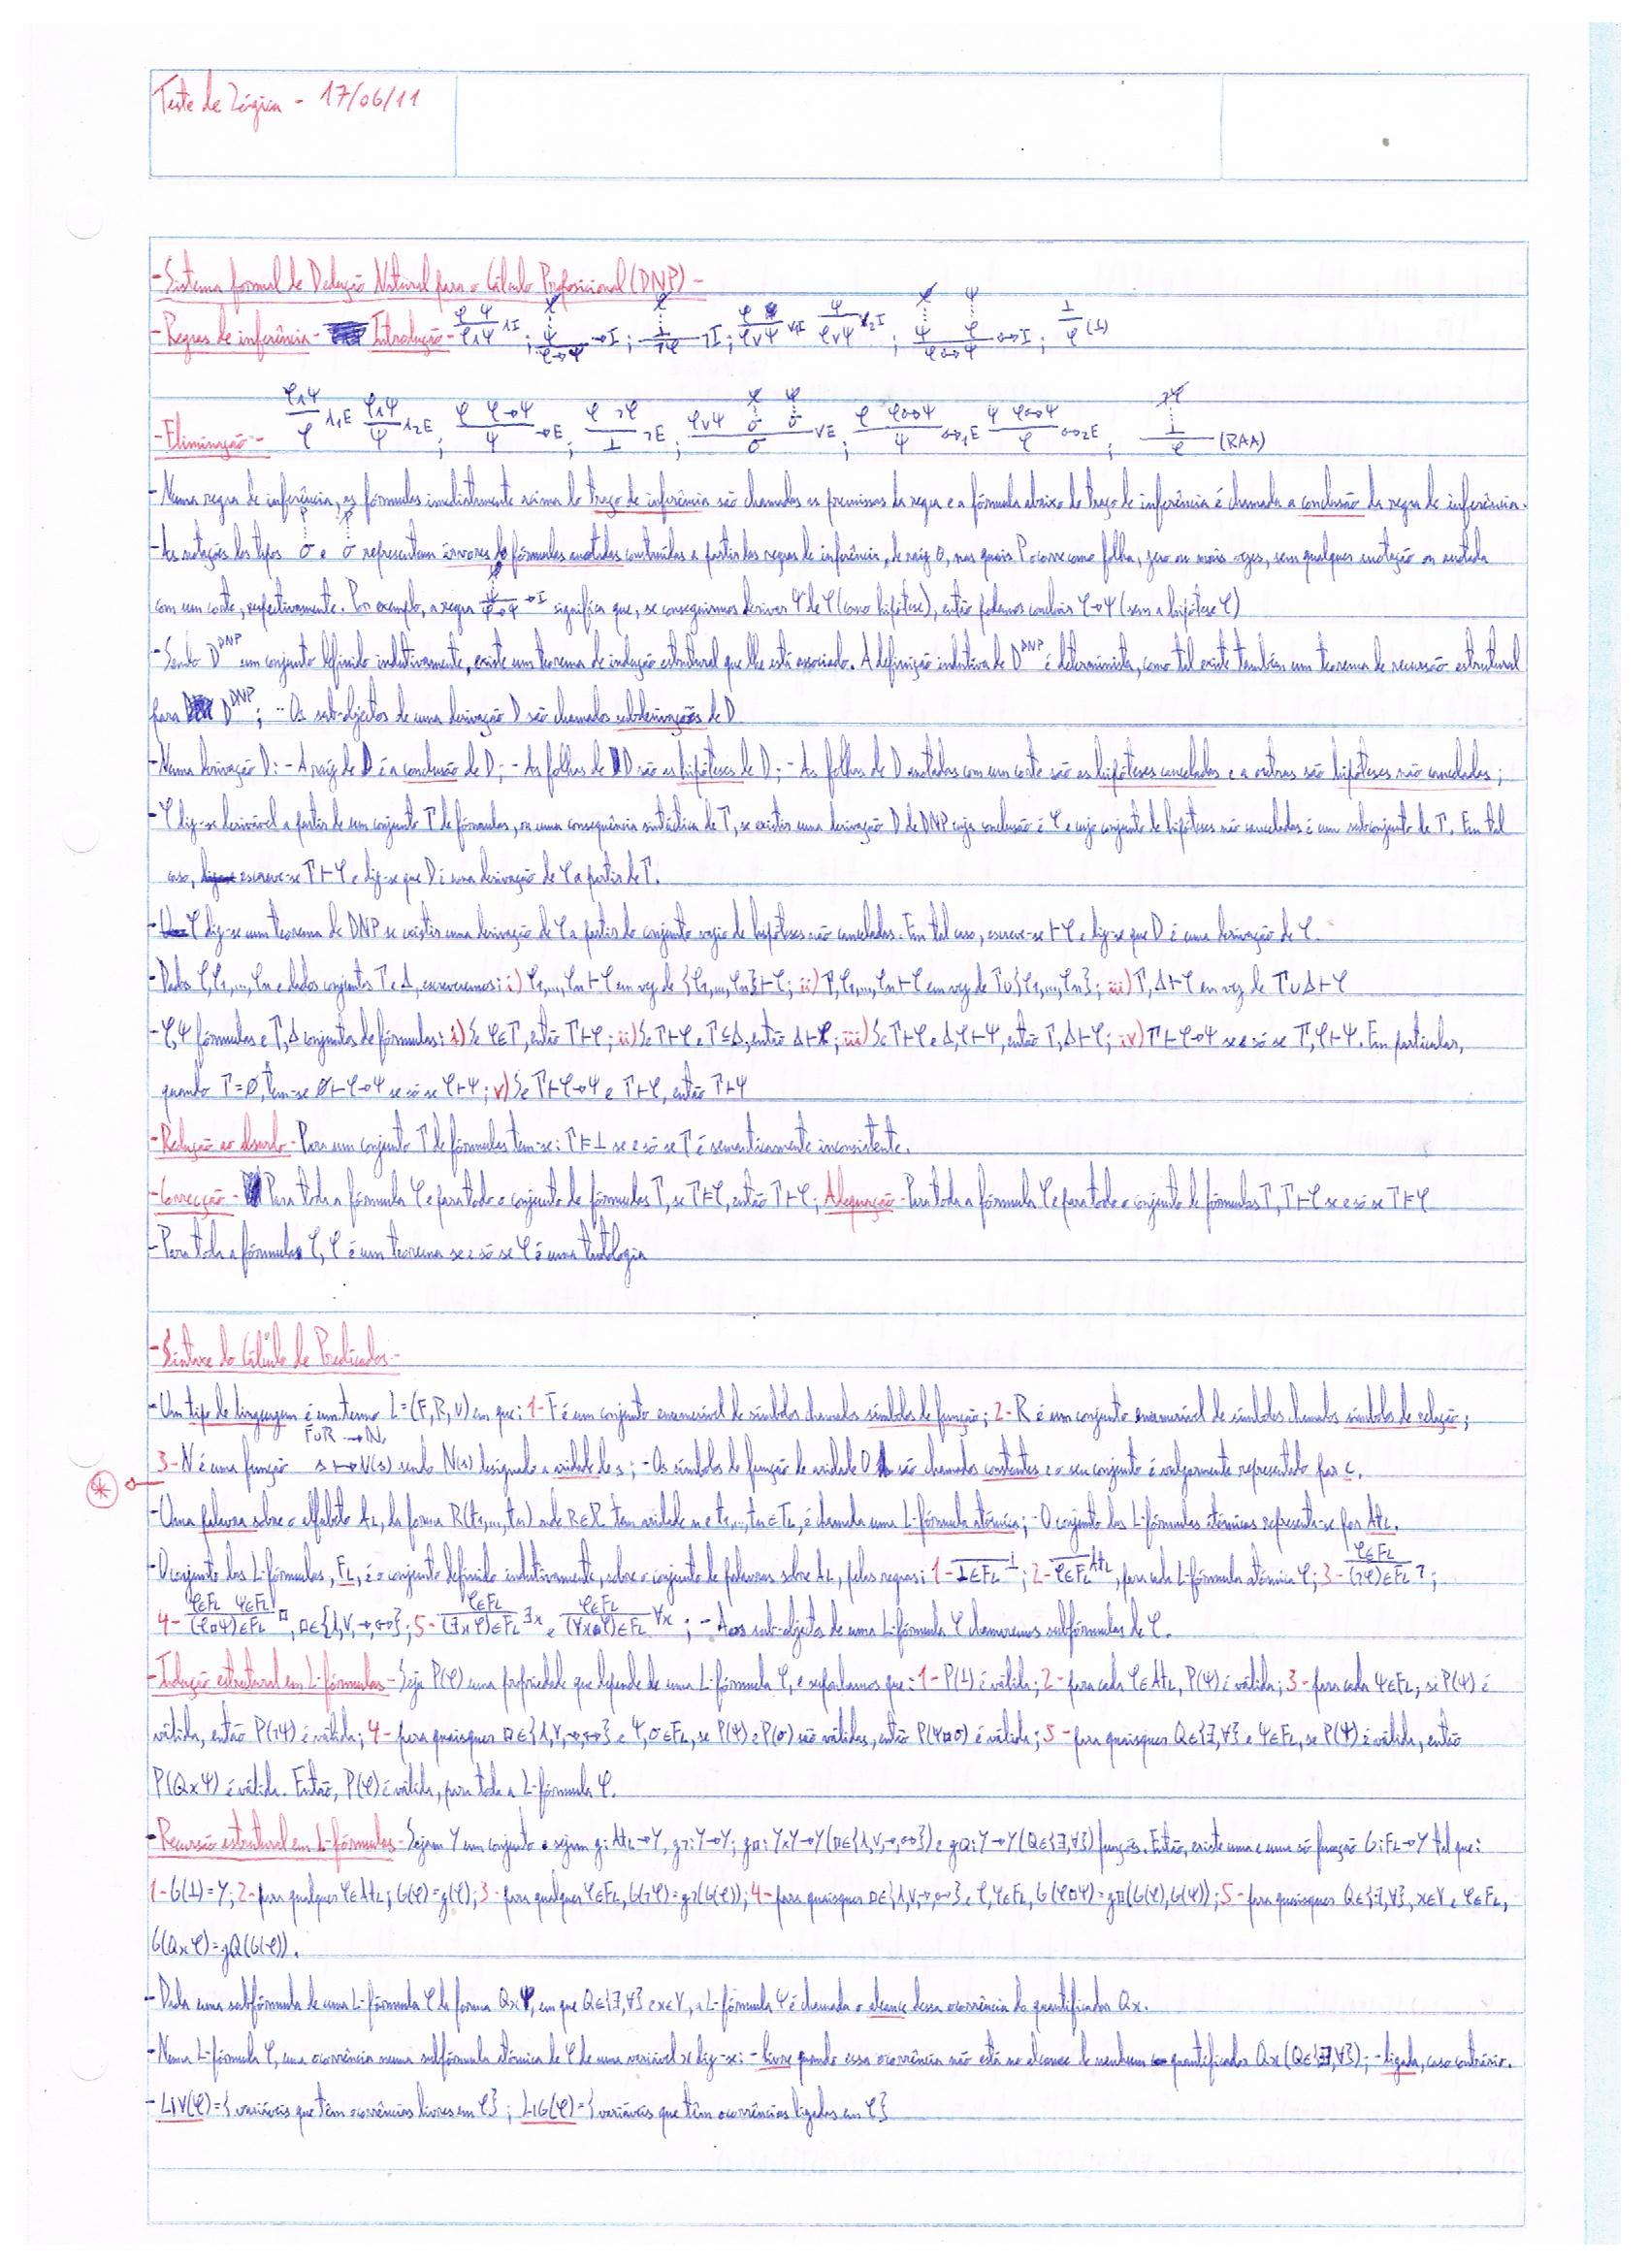 Teste de Lógica - 17/06/11
- Sistema formal de Dedução Natural para o Cálculo Proposicional (DNP) -
- Regras de inferência - Introdução - φ ψ / φ∧ψ ∧I ; φ ⋮ ψ / φ→ψ →I ; φ ⋮ ⊥ / ¬φ ¬I ; φ / φ∨ψ ∨1I ψ / φ∨ψ ∨2I ; φ ⋮ ψ ψ ⋮ φ / φ↔ψ ↔I ; ⊥ / φ (⊥)
- Eliminação - φ∧ψ / φ ∧1E φ∧ψ / ψ ∧2E ; φ φ→ψ / ψ →E ; φ ¬φ / ⊥ ¬E ; φ∨ψ φ ⋮ σ ψ ⋮ σ / σ ∨E ; φ φ↔ψ / ψ ↔1E ψ φ↔ψ / φ ↔2E ; ¬φ ⋮ ⊥ / φ (RAA)
- Numa regra de inferência, as fórmulas imediatamente acima do traço de inferência são chamadas as premissas da regra e a fórmula abaixo do traço de inferência é chamada a conclusão da regra de inferência.
- As notações dos tipos φ ⋮ σ e φ ⋮ σ representam árvores de fórmulas anotadas construídas a partir das regras de inferência, de raiz σ, nas quais φ ocorre como folha, zero ou mais vezes, sem qualquer anotação ou anotada
com um corte, respectivamente. Por exemplo, a regra φ ⋮ ψ / φ→ψ →I significa que, se conseguirmos derivar ψ de φ (como hipótese), então podemos concluir φ→ψ (sem a hipótese φ)
- Sendo D^DNP um conjunto definido indutivamente, existe um teorema de indução estrutural que lhe está associado. A definição indutiva de D^DNP é determinista, como tal existe também um teorema de recursão estrutural
para D^DNP ; - Os sub-objectos de uma derivação D são chamados subderivações de D
- Numa derivação D: - A raíz de D é a conclusão de D ; - As folhas de D são as hipóteses de D ; - As folhas de D anotadas com um corte são as hipóteses canceladas e a outras são hipóteses não canceladas ;
- φ diz-se derivável a partir de um conjunto Γ de fórmulas, ou uma consequência sintáctica de Γ, se existir uma derivação D de DNP cuja conclusão é φ e cujo conjunto de hipóteses não canceladas é um subconjunto de Γ. Em tal
caso, escreve-se Γ⊢φ e diz-se que D é uma derivação de φ a partir de Γ.
- φ diz-se um teorema de DNP se existir uma derivação de φ a partir do conjunto vazio de hipóteses não canceladas. Em tal caso, escreve-se ⊢φ e diz-se que D é uma derivação de φ.
- Dados φ, φ1, ..., φn e dados conjuntos Γ e Δ, escreveremos: i) φ1, ..., φn⊢φ em vez de {φ1, ..., φn}⊢φ ; ii) Γ, φ1, ..., φn⊢φ em vez de Γ∪{φ1, ..., φn} ; iii) Γ, Δ⊢φ em vez de Γ∪Δ⊢φ
- φ, ψ fórmulas e Γ, Δ conjuntos de fórmulas: i) Se φ∈Γ, então Γ⊢φ ; ii) Se Γ⊢φ e Γ⊆Δ, então Δ⊢φ ; iii) Se Γ⊢φ e Δ, φ⊢ψ, então Γ, Δ⊢φ ; iv) Γ⊢φ→ψ se e só se Γ, φ⊢ψ. Em particular,
quando Γ=∅, tem-se ∅⊢φ→ψ se só se φ⊢ψ ; v) Se Γ⊢φ→ψ e Γ⊢φ, então Γ⊢ψ
- Redução ao absurdo - Para um conjunto Γ de fórmulas tem-se: Γ⊨⊥ se e só se Γ é semanticamente inconsistente.
- Correcção - Para toda a fórmula φ e para todo o conjunto de fórmulas Γ, se Γ⊢φ, então Γ⊢φ ; Adequação - Para toda a fórmula φ e para todo o conjunto de fórmulas Γ, Γ⊢φ se e só se Γ⊨φ
- Para toda a fórmula φ, φ é um teorema se e só se φ é uma tautologia
- Sintaxe do Cálculo de Predicados -
- Um tipo de linguagem é um terno L=(F, R, N) em que: 1- F é um conjunto enumerável de símbolos chamados símbolos de função ; 2- R é um conjunto enumerável de símbolos chamados símbolos de relação ;
3- N é uma função F∪R→N₀ s↦N(s) sendo N(s) designado a aridade de s ; - Os símbolos de função de aridade 0 são chamados constantes e o seu conjunto é vulgarmente representado por C.
- Uma palavra sobre o alfabeto AL, da forma R(t1, ..., tn) onde R∈R tem aridade n e t1, ..., tn∈TL, é chamada uma L-fórmula atómica ; - O conjunto das L-fórmulas atómicas representa-se por AtL.
- O conjunto das L-fórmulas, FL, é o conjunto definido indutivamente, sobre o conjunto de palavras sobre AL, pelas regras: 1- ⊥∈FL ⊥ ; 2- φ∈FL AtL, para cada L-fórmula atómica φ ; 3- φ∈FL / (¬φ)∈FL ¬ ;
4- φ∈FL ψ∈FL / (φ□ψ)∈FL □, □∈{∧, ∨, →, ↔} ; 5- φ∈FL / (∃xφ)∈FL ∃x e φ∈FL / (∀xφ)∈FL ∀x ; - Aos sub-objectos de uma L-fórmula φ chamaremos subfórmulas de φ.
- Indução estrutural em L-fórmulas - Seja P(φ) uma propriedade que depende de uma L-fórmula φ, e suponhamos que: 1- P(⊥) é válida ; 2- para cada φ∈AtL, P(ψ) é válida ; 3- para cada ψ∈FL, se P(ψ) é
válida, então P(¬ψ) é válida ; 4- para quaisquer □∈{∧, ∨, →, ↔} e ψ, σ∈FL, se P(ψ) e P(σ) são válidas, então P(ψ□σ) é válida ; 5- para quaisquer Q∈{∃, ∀} e ψ∈FL, se P(ψ) é válida, então
P(Qxψ) é válida. Então, P(φ) é válida, para toda a L-fórmula φ.
- Recursão estrutural em L-fórmulas - Sejam Y um conjunto e sejam g: AtL→Y, g¬: Y→Y ; g□: Y×Y→Y (□∈{∧, ∨, →, ↔}) e gQ: Y→Y (Q∈{∃, ∀}) funções. Então, existe uma e uma só função G: FL→Y tal que:
1- G(⊥)=Y ; 2- para qualquer φ∈AtL ; G(φ)=g(φ) ; 3- para qualquer φ∈FL, G(¬φ)=g¬(G(φ)) ; 4- para quaisquer □∈{∧, ∨, →, ↔} e φ, ψ∈FL, G(φ□ψ)=g□(G(φ), G(ψ)) ; 5- para quaisquer Q∈{∃, ∀}, x∈V e φ∈FL,
G(Qxφ)=gQ(G(φ)).
- Dada uma subfórmula de uma L-fórmula φ da forma Qxψ, em que Q∈{∃, ∀} e x∈V, a L-fórmula ψ é chamada o alcance dessa ocorrência do quantificador Qx.
- Numa L-fórmula φ, uma ocorrência numa subfórmula atómica de φ de uma variável x diz-se: - livre quando essa ocorrência não está no alcance de nenhum quantificador Qx (Q∈{∃, ∀}) ; - ligada, caso contrário.
- LIV(φ)={variáveis que têm ocorrências livres em φ} ; LIG(φ)={variáveis que têm ocorrências ligadas em φ}